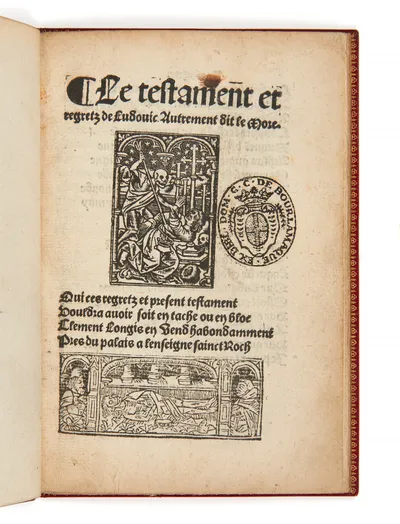 ⸿Le testament et
regretz de Ludovic Autrement dit le More.
EX BIBL. DOM. C. C. DE BOURLAMAQUE.
Qui ces regretz et present testament
Vouldra avoir soit en tache ou en bloc
Clement Longis en vend habondamment
Pres du palais a lenseigne sainct Roch